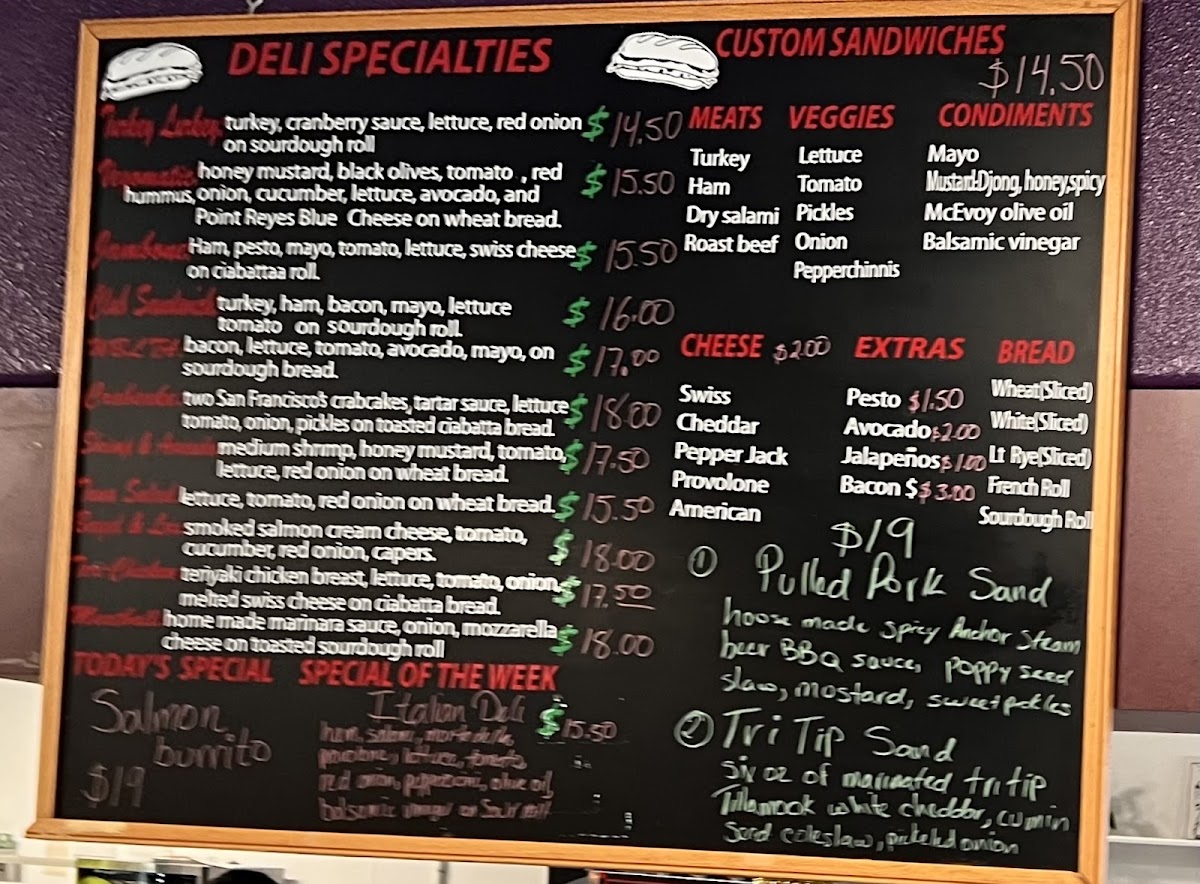 DELI SPECIALTIES
Turkey Lurkey, turkey, cranberry sauce, lettuce, red onion $14.50
on sourdough roll
honey mustard, black olives, tomato , red $15.50
hummus, onion, cucumber, lettuce, avocado, and
Point Reyes Blue Cheese on wheat bread.
Ham, pesto, mayo, tomato, lettuce, swiss cheese $15.50
on ciabattaa roll.
turkey, ham, bacon, mayo, lettuce $16.00
tomato on sourdough roll.
bacon, lettuce, tomato, avocado, mayo, on $17.00
sourdough bread.
two San Francisco's crabcakes, tartar sauce, lettuce $18.00
tomato, onion, pickles on toasted ciabatta bread.
medium shrimp, honey mustard, tomato, $17.50
lettuce, red onion on wheat bread.
lettuce, tomato, red onion on wheat bread. $15.50
smoked salmon cream cheese, tomato, $18.00
cucumber, red onion, capers.
teriyaki chicken breast, lettuce, tomato, onion, $17.50
melted swiss cheese on ciabatta bread.
home made marinara sauce, onion, mozzarella $18.00
cheese on toasted sourdough roll
TODAY'S SPECIAL
Salmon
burrito
$19
SPECIAL OF THE WEEK
Italian Deli $15.50
ham, salami,
provolone, lettuce, tomato
red onion, olive oil,
balsamic
CUSTOM SANDWICHES
$14.50
MEATS
Turkey
Ham
Dry salami
Roast beef
VEGGIES
Lettuce
Tomato
Pickles
Onion
Pepperchinnis
CONDIMENTS
Mayo
Mustard:Djong, honey,spicy
McEvoy olive oil
Balsamic vinegar
CHEESE $2.00
Swiss
Cheddar
Pepper Jack
Provolone
American
EXTRAS
Pesto $1.50
Avocado $2.00
Jalapeños $1.00
Bacon $ $3.00
BREAD
Wheat(Sliced)
White(Sliced)
Lt Rye(Sliced)
French Roll
Sourdough Roll
$19
① Pulled Pork Sand
house made spicy Anchor Steam
beer BBQ sauce, poppy seed
slaw, mostard, sweet pickles
② Tri Tip Sand
six oz of marinated tri tip
Tillamook white cheddar, cumin
seed coleslaw, pickeled onion